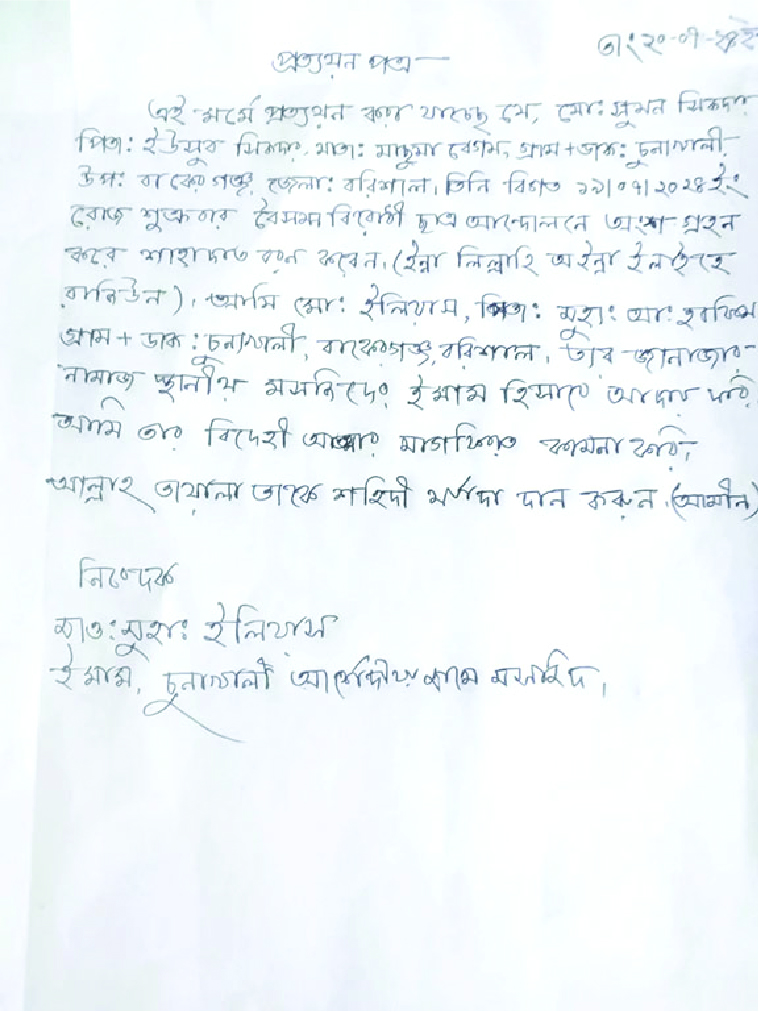 তাং ২০-০৭-২৪ইং
প্রত্যয়ন পত্র—
এই মর্মে প্রত্যয়ন করা যাচ্ছে যে, মো: সুমন সিকদার
পিতা: ইউসুব সিকদার, মাতা: মাছুমা বেগম, গ্রাম + ডাক: চুনাখালী
উপ: বাকেরগঞ্জ, জেলা: বরিশাল, তিনি বিগত ১৯/০৭/২০২৪ইং
রোজ শুক্রবার বৈসম্য বিরোধী ছাত্র আন্দোলনে অংশ গ্রহন
করে শাহাদাত বরন করেন, (ইন্না লিল্লাহি অইন্না ইলাইহে
রাজিউন), আমি মো: ইলিয়াস, পিতা: মুহা: আ:
গ্রাম + ডাক: চুনাখালী, বাকেরগঞ্জ, বরিশাল, তার জানাজার
নামাজ স্থানীয় মসজিদের ইমাম হিসাবে আদায় করি
আমি তার বিদেহী আত্মার মাগফিরাত কামনা করি,
আল্লাহ তায়ালা তাকে শহিদী মর্যাদা দান করুন, (আমীন)
নিবেদক
মাও: মুহা: ইলিয়াস
ইমাম, চুনাখালী জামে মসজিদ,